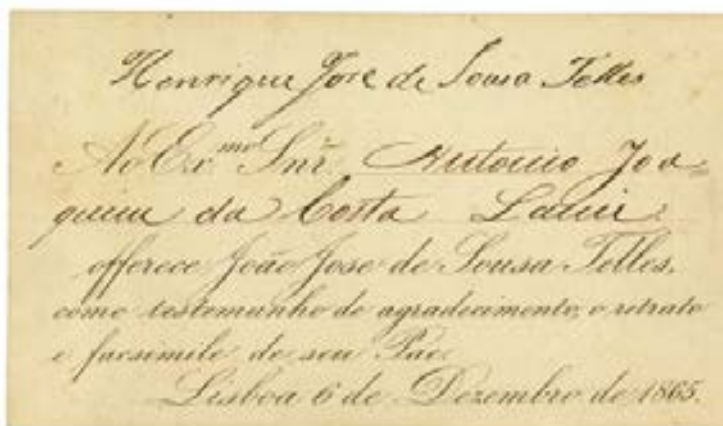 Henrique José de Sousa Telles
Ao Ex.mo Snr. Antonio Joa-
quim da Costa
offerece João José de Sousa Telles,
como testemunho de agradecimento, o retrato
e facsimile de seu Pae.
Lisboa 6 de Dezembro de 1865.